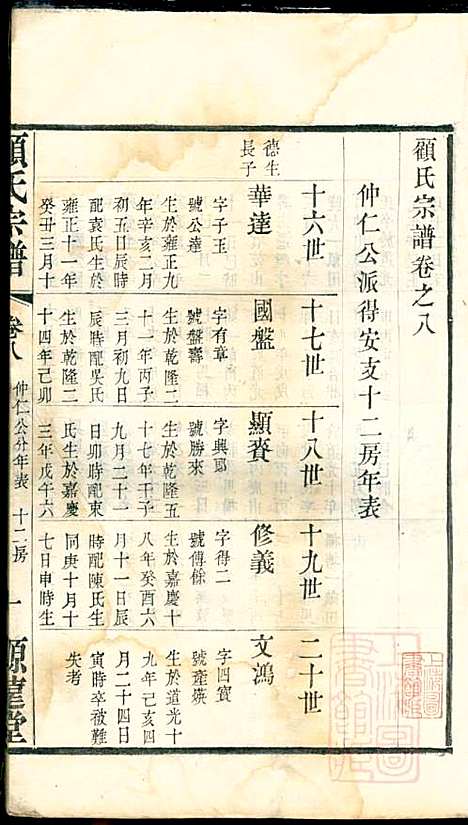 顧氏宗譜卷之八
仲仁公派得安支十二房年表
十六世
十七世
十八世
十九世
二十世
德生
長子
華達
字子玉
號公達
生於雍正九
年辛亥二月
初五日辰時
配袁氏生於
雍正十一年
癸丑三月十
國盤
字有章
號盤壽
生於乾隆二
十一年丙子
三月初九日
辰時配吳氏
生於乾隆二
十四年己卯
顯賚
字興郎
號勝來
生於乾隆五
十七年壬子
九月二十一
日卯時配束
氏生於嘉慶
三年戊午六
修義
字得二
號傳餘
生於嘉慶十
八年癸酉六
月十一日辰
時配陳氏生
同庚十月十
七日申時生
文鴻
字四寶
號產煐
生於道光十
九年己亥四
月二十四日
寅時卒被難
失考
顧氏宗譜
卷八
仲仁公分年表
十二房
一
源建堂
上海圖書館藏